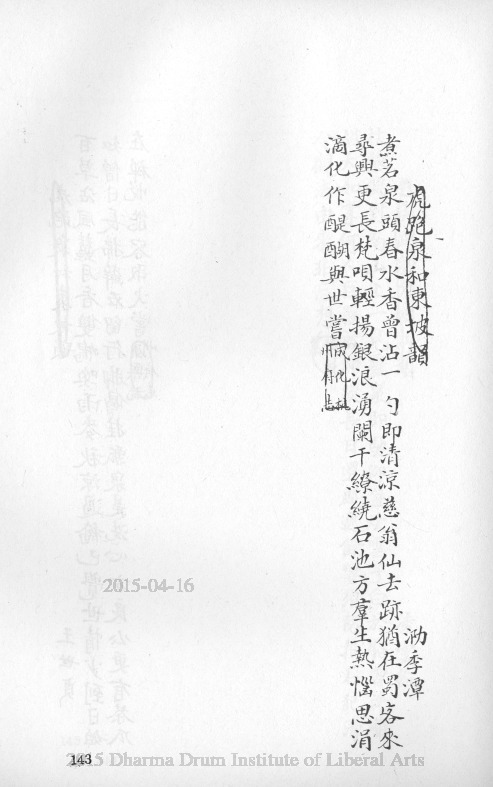 虎跑泉和東坡韻 泐季潭
煮茗泉頭春水香曾沾一勺即清涼慈翁仙去跡猶在蜀客來
尋興更長梵唄輕揚銀浪湧闌干繚繞石池方羣生熱惱思涓
滴化作醍醐與世嘗 成化杭
州府志
2015-04-16
143
2015 Dharma Drum Institute of Liberal Arts